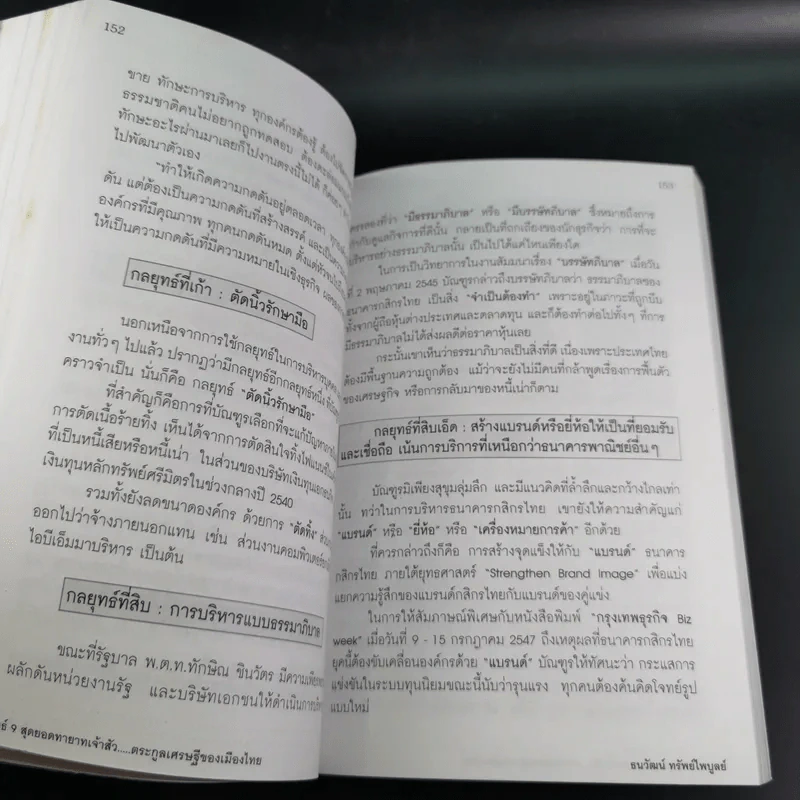 152
ขาย ทักษะการบริหาร ทุกองค์กรต้องรู้
ธรรมชาติคนไม่อยากถูกทดสอบ
ทักษะอะไรผ่านมาเลยก็ไปงานตรงนี้ไม่ได้
ไปพัฒนาตัวเอง
"ทำให้เกิดความกดดันอยู่ตลอดเวลา
ดัน แต่ต้องเป็นความกดดันที่สร้างสรรค์ และเป็น
องค์กรที่มีคุณภาพ ทุกคนกดดันหมด
ให้เป็นความกดดันที่มีความหมายในเชิงธุรกิจ
กลยุทธ์ที่เก้า : ตัดนิ้วรักษามือ
นอกเหนือจากการใช้กลยุทธ์ในการบริหาร
งานทั่วๆ ไปแล้ว ปรากฏว่ามีกลยุทธ์อีกกลยุทธ์หนึ่ง
คราวจำเป็น นั่นก็คือ กลยุทธ์ "ตัดนิ้วรักษามือ"
ที่สำคัญก็คือการที่บัณฑูรเลือกที่จะแก้ปัญหา
การตัดเนื้อร้ายทิ้ง เห็นได้จากการตัดสินใจทิ้งไฟแนนซ์
ที่เป็นหนี้เสียหรือหนี้เน่า ในส่วนของบริษัทเงินทุน
เงินทุนหลักทรัพย์ศรีมิตรในช่วงกลางปี 2540
รวมทั้งยังลดขนาดองค์กร ด้วยการ "ตัดทิ้ง"
ออกไปว่าจ้างภายนอกแทน เช่น ส่วนงานคอมพิวเตอร์
ไอบีเอ็มมาบริหาร เป็นต้น
กลยุทธ์ที่สิบ : การบริหารแบบธรรมาภิบาล
ขณะที่รัฐบาล พ.ต.ท.ทักษิณ ชินวัตร
ผลักดันหน่วยงานรัฐ และบริษัทเอกชนให้ดำเนินการ
9 สุดยอดทายาทเจ้าสัว.....ตระกูลเศรษฐีของเมืองไทย
153
"มีธรรมาภิบาล" หรือ "มีบรรษัทภิบาล" ซึ่งหมายถึงการ
กำกับดูแลกิจการที่ดีนั้น กลายเป็นที่ถกเถียงของนักธุรกิจว่า การที่จะ
บริหารอย่างธรรมาภิบาลนั้น เป็นไปได้แค่ไหนเพียงใด
ในการเป็นวิทยาการในงานสัมมนาเรื่อง "บรรษัทภิบาล" เมื่อวัน
ที่ 2 พฤษภาคม 2545 บัณฑูรกล่าวถึงบรรษัทภิบาลว่า ธรรมาภิบาลของ
ธนาคารกสิกรไทย เป็นสิ่ง "จำเป็นต้องทำ" เพราะอยู่ในภาวะที่ถูกบีบ
ทั้งจากผู้ถือหุ้นต่างประเทศและตลาดทุน และก็ต้องทำต่อไปทั้งๆ ที่การ
มีธรรมาภิบาลไม่ได้ส่งผลดีต่อราคาหุ้นเลย
กระนั้นเขาเห็นว่าธรรมาภิบาลเป็นสิ่งที่ดี เนื่องเพราะประเทศไทย
ต้องมีพื้นฐานความถูกต้อง แม้ว่าจะยังไม่มีคนที่กล้าพูดเรื่องการฟื้นตัว
ของเศรษฐกิจ หรือการกลับมาของหนี้เน่าก็ตาม
กลยุทธ์ที่สิบเอ็ด : สร้างแบรนด์หรือยี่ห้อให้เป็นที่ยอมรับ
และเชื่อถือ เน้นการบริการที่เหนือกว่าธนาคารพาณิชย์อื่นๆ
บัณฑูรมิเพียงสุขุมลุ่มลึก และมีแนวคิดที่ล้ำลึกและกว้างไกลเท่า
นั้น ทว่าในการบริหารธนาคารกสิกรไทย เขายังให้ความสำคัญแก่
"แบรนด์" หรือ "ยี่ห้อ" หรือ "เครื่องหมายการค้า" อีกด้วย
ที่ควรกล่าวถึงก็คือ การสร้างจุดแข็งให้กับ "แบรนด์" ธนาคาร
กสิกรไทย ภายใต้ยุทธศาสตร์ "Strengthen Brand Image" เพื่อแบ่ง
แยกความรู้สึกของแบรนด์กสิกรไทยกับแบรนด์ของคู่แข่ง
ในการให้สัมภาษณ์พิเศษกับหนังสือพิมพ์ "กรุงเทพธุรกิจ Biz
week" เมื่อวันที่ 9 - 15 กรกฎาคม 2547 ถึงเหตุผลที่ธนาคารกสิกรไทย
ยุคนี้ต้องขับเคลื่อนองค์กรด้วย "แบรนด์" บัณฑูรให้ทัศนะว่า กระแสการ
แข่งขันในระบบทุนนิยมขณะนี้นับว่ารุนแรง ทุกคนต้องค้นคิดโจทย์รูป
แบบใหม่
ธนวัฒน์ ทรัพย์ไพบูลย์